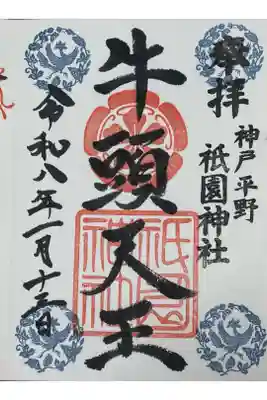 奉拝
神戸平野
祇園神社
牛頭天王
令和八年一月十三日